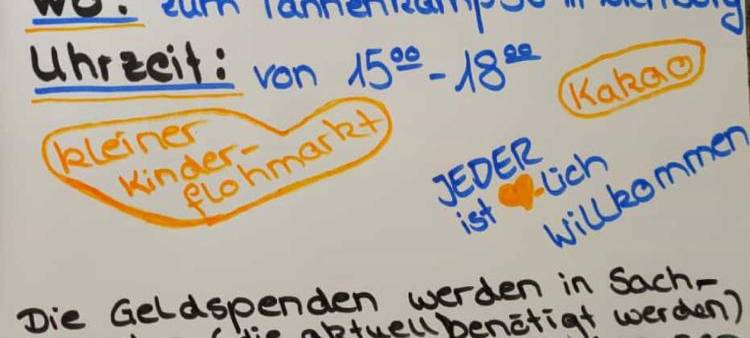 WO: zum Tannenkamp 30 in
Uhrzeit: von 15⁰⁰ - 18⁰⁰
Kakao
kleiner
Kinder-
flohmarkt
JEDER
ist ♥-lich
Willkommen
Die Geldspenden werden in Sach-
(die aktuell benötigt werden)